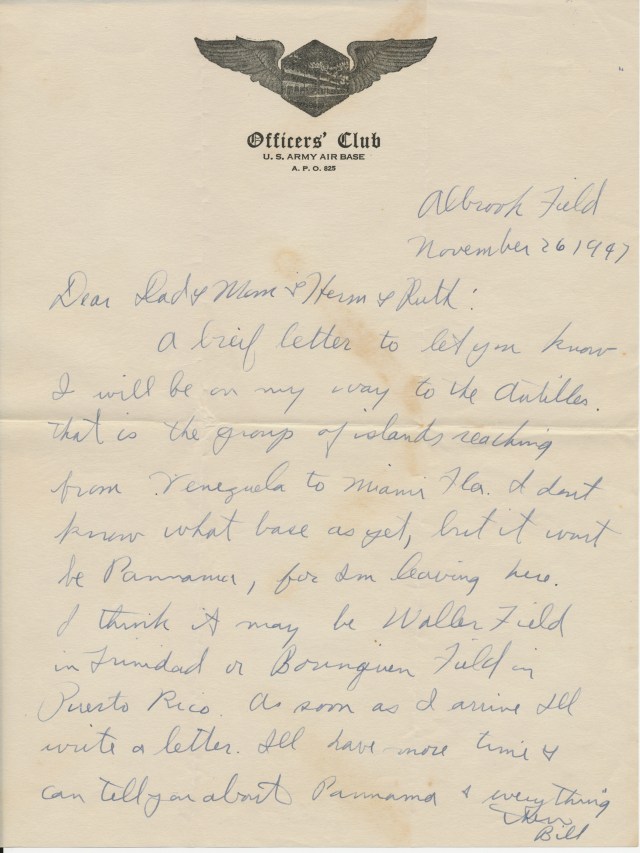 Officers' Club
U. S. ARMY AIR BASE
A. P. O. 825
Albrook Field
November 26 1947
Dear Dad & Mom & Herm & Ruth:
A brief letter to let you know
I will be on my way to the Antilles.
that is the group of islands reaching
from Venezuela to Miami Fla. I dont
know what base as yet, but it wont
be Pannama, for Im leaving here.
I think it may be Waller Field
in Trinidad or Bourinquen Field in
Puerto Rico. As soon as I arrive Ill
write a letter. Ill have more time &
can tell you about Pannama & everything
then
Bill